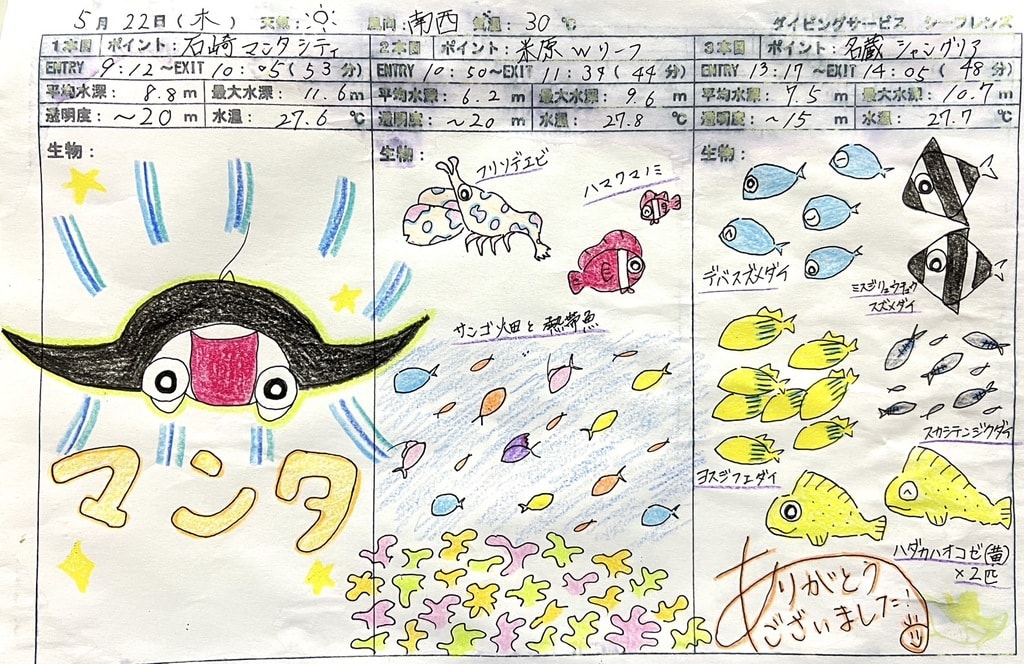 5月22日(木) 天候: 風向:南西 気温:30℃ ダイビングサービス シーフレンズ
1本目 ポイント:石崎マンタシティ
ENTRY 9:12~EXIT 10:05(53分)
平均水深: 8.8m 最大水深: 11.6m
透明度:~20m 水温: 27.6℃
生物:
マンタ
2本目 ポイント:米原Wリーフ
ENTRY 10:50~EXIT 11:34(44分)
平均水深: 6.2m 最大水深: 9.6m
透明度:~20m 水温: 27.8℃
生物:
フリソデエビ
ハマクマノミ
サンゴ畑と熱帯魚
3本目 ポイント:名蔵シャングリア
ENTRY 13:17~EXIT 14:05(48分)
平均水深: 7.5m 最大水深: 10.7m
透明度:~15m 水温: 27.7℃
生物:
デバスズメダイ
ミスジリュウキュウ
スズメダイ
スカシテンジクダイ
ヨスジフエダイ
ハダカハオコゼ(黄)
×2匹
ありがとう
ございました!